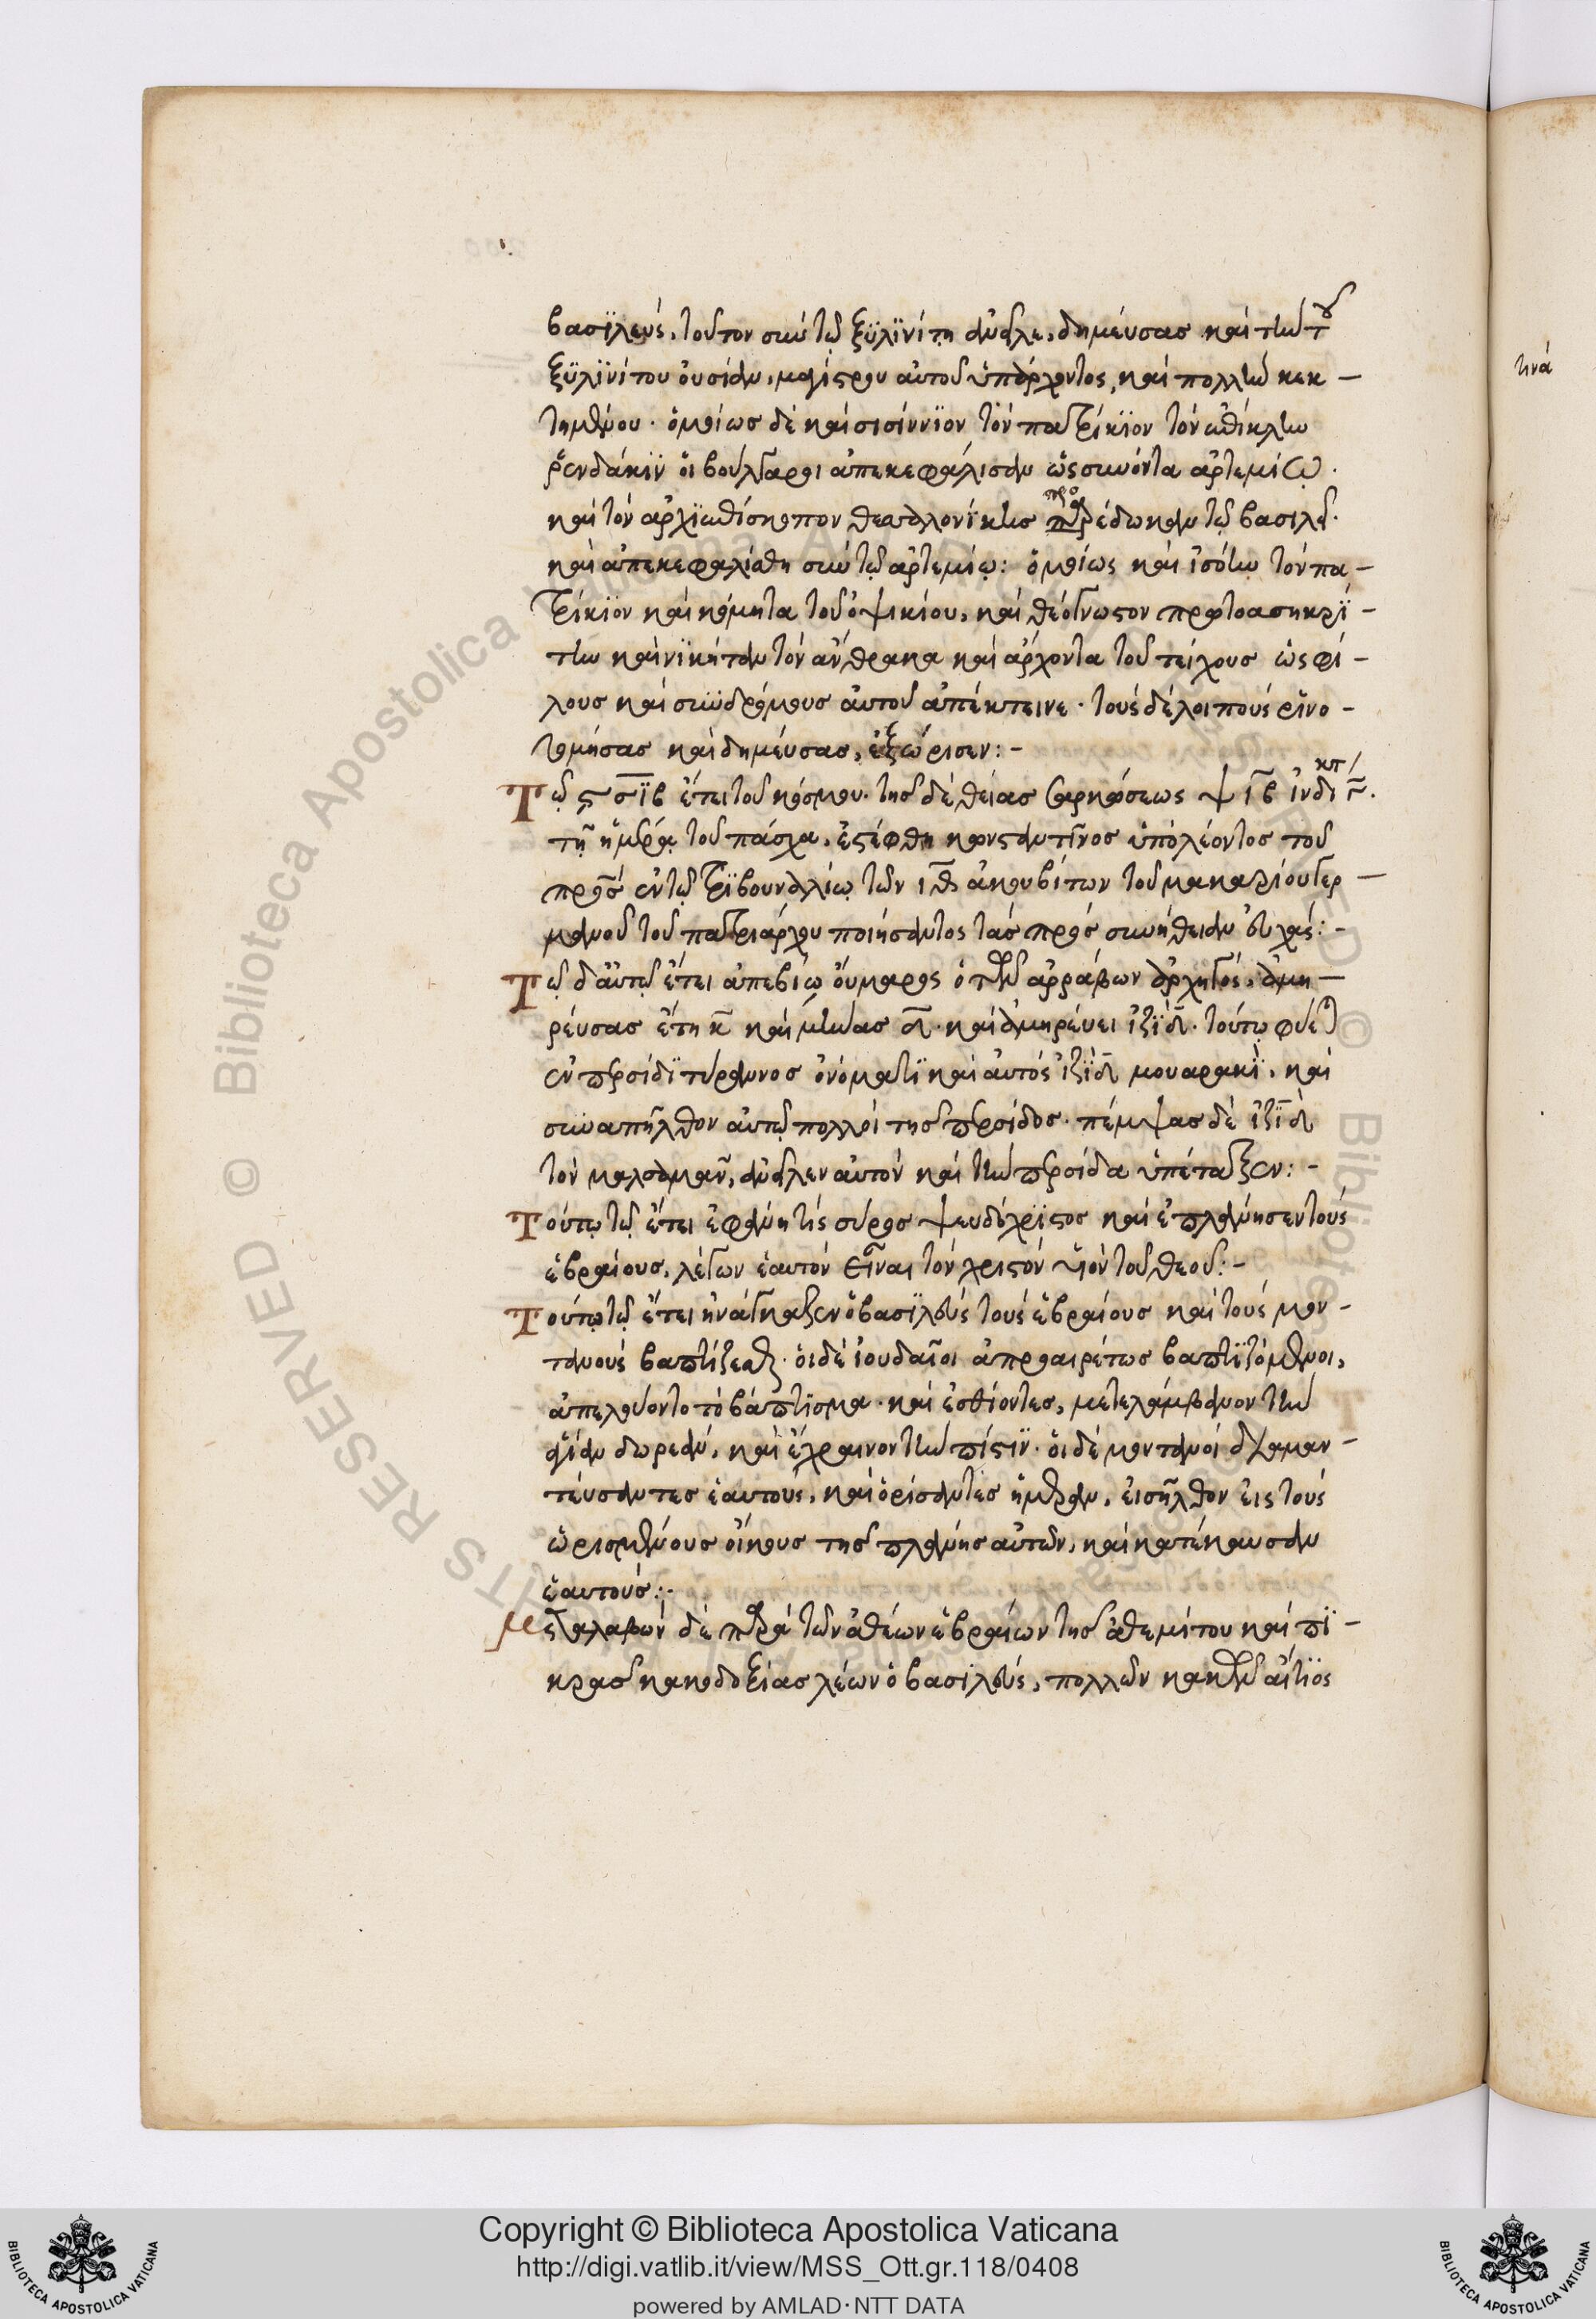 βασϊλεύς, τοῦτον σὺν τῷ ξϋλϊνίτη ἀνεῖλε, δημεύσας καὶ τὴν τοῦ
ξϋλϊνίτου οὐσίαν, μαγίστρου αὐτοῦ ὑπάρχοντος, καὶ πολλὴν κεκ –
τημένου · ὁμοίως δὲ καὶ σισίννϊον τὸν πατρίκϊον τὸν ἐπίκλην
ῥενδάκϊν οἱ βούλγαροι ἀπεκεφάλισαν ὡς συνόντα ἀρτεμίῳ ·
καὶ τὸν ἀρχϊεπίσκοπον θεσσαλονίκης προέδωκαν τῷ βασιλεῖ ·
καὶ ἀπεκεφαλίσθη σὺν τῷ ἀρτεμίῳ : ὁμοίως καὶ ἰσόην τὸν πα –
τρίκϊον καὶ κόμητα τοῦ ὀψικίου, καὶ θεόγνωστον πρωτοασηκρῖ –
την καὶ νϊκήταν τὸν ἄνθρακα καὶ ἄρχοντα τοῦ τείχους ὡς φί –
λους καὶ συνδρόμους αὐτοῦ ἀπέκτεινε · τοὺς δὲ λοιποὺς ῥϊνο –
τομήσας καὶ δημεύσας, ἐξώρισεν : –
Τῷ ͵ϛσϊβ ἔτει τοῦ κόσμου · τῆς δὲ θείας σαρκώσεως ψιβ ἰνδι γ̅ · κπ/
τῇ ἡμέρᾳ τοῦ πάσχα, ἐστέφθη κωνσταντῖνος ὑπὸ λέοντος τοῦ
πατρὸς ἐν τῷ τρϊβουναλίῳ τῶν ιθ ἀκουβίτων τοῦ μακαρίου γερ –
μανοῦ τοῦ πατριάρχου ποιήσαντος τὰς πρὸς συνήθειαν εὐχάς : –
Τῷ δ αὐτῷ ἔτει ἀπεβίω οὔμαρος ὁ τῶν ἀρράβων ἀρχηγός, ἀμη –
ρεύσας ἔτη κ̅ καὶ μῆνας δ̅ · καὶ ἀμηρεύει ἰζϊδ · τούτῳ φύεται
ἐν περσίδϊ τύραννος ὀνόματϊ καὶ αὐτὸς ἰζϊδ μουαρακϊ, καὶ
συναπῆλθον αὐτῷ πολλοὶ τῆς περσίδος · πέμψας δὲ ἰζϊδ
τὸν μαλσαμὰν, ἀνεῖλεν αὐτὸν καὶ τὴν περσίδα ὑπέταξεν : –
Τούτῳ τῷ ἔτει ἐφάνη τὶς σύρος ψευδόχρϊστος καὶ ἐπλάνησεν τοὺς
ἑβραίους, λέγων ἑαυτὸν εἶναι τὸν χριστὸν υἱὸν τοῦ θεοῦ : –
Τούτῳ τῷ ἔτει ἠνάγκαξεν ὁ βασϊλεὺς τοὺς ἑβραίους καὶ τοὺς μον –
τανοὺς βαπτίζεσθαι · οἱ δὲ ἰουδαῖοι ἀπροαιρέτως βαπτϊζόμενοι,
ἀπελούοντο τὸ βάπτϊσμα · καὶ ἐσθίοντες, μετελάμβανον τὴν
ἁγίαν δωρεὰν, καὶ ἔχραινον τὴν πίστϊν · οἱ δὲ μοντανοὶ διαμαν –
τεύσαντες ἑαυτοὺς, καὶ ὁρίσαντες ἡμέραν, εἰσῆλθον εἰς τοὺς
ὡρισμένους οἴκους τῆς πλάνης αὐτῶν, καὶ κατέκαυσαν
ἑαυτούς : ·
Μεταλαβὼν δὲ παρὰ τῶν ἀθέων ἑβραίων τῆς ἀθεμίτου καὶ πϊ –
κρᾶς κακοδοξίας λέων ὁ βασιλεὺς, πολλῶν κακῶν αἴτϊος
τινὰ
Copyright © Biblioteca Apostolica Vaticana
http://digi.vatlib.it/view/MSS_Ott.gr.118/0408
powered by AMLAD · NTT DATA